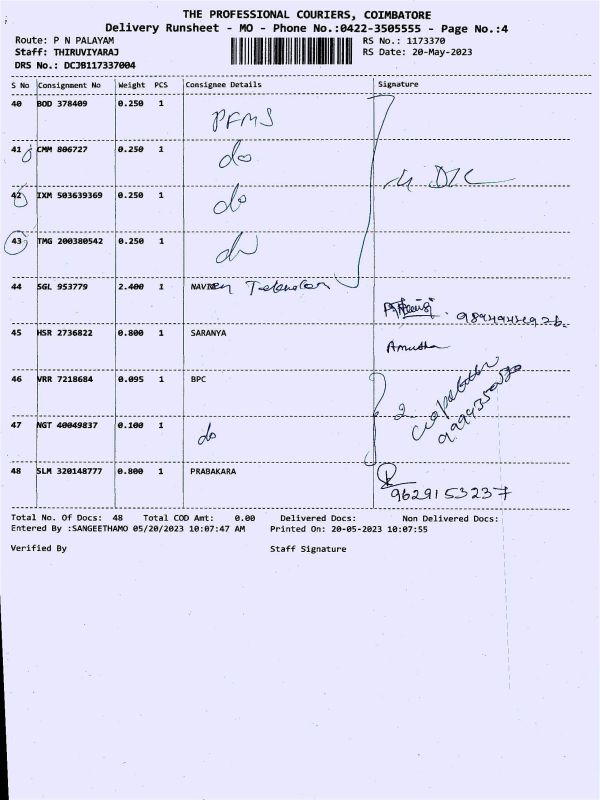 THE PROFESSIONAL COURIERS, COIMBATORE
Delivery Runsheet - MO - Phone No.:0422-3505555 - Page No.:4
Route: P N PALAYAM RS No.: 1173370
Staff: THIRUVIYARAJ RS Date: 20-May-2023
DRS No.: DCJB117337004
S No Consignment No Weight PCS Consignee Details Signature
40 BOD 378409 0.250 1 PFMS
41 CMM 806727 0.250 1 do
42 IXM 503639369 0.250 1 do
43 TMG 200380542 0.250 1 do
44 SGL 953779 2.400 1 NAVIEN
45 HSR 2736822 0.800 1 SARANYA Amutha
46 VRR 7218684 0.095 1 BPC
47 NGT 40049837 0.100 1 do
48 SLM 320148777 0.800 1 PRABAKARA 9629153237
Total No. Of Docs: 48 Total COD Amt: 0.00 Delivered Docs: Non Delivered Docs:
Entered By :SANGEETHAMO 05/20/2023 10:07:47 AM Printed On: 20-05-2023 10:07:55
Verified By Staff Signature